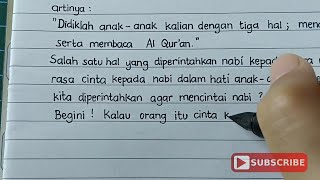 artinya :
"Didiklah anak-anak kalian dengan tiga hal ;
serta membaca Al Qur'an."
Salah satu hal yang diperintahkan nabi
rasa cinta kepada nabi dalam hati anak-
kita diperintahkan agar mencintai nabi ?
Begini ! Kalau orang itu cinta k
SUBSCRIBE